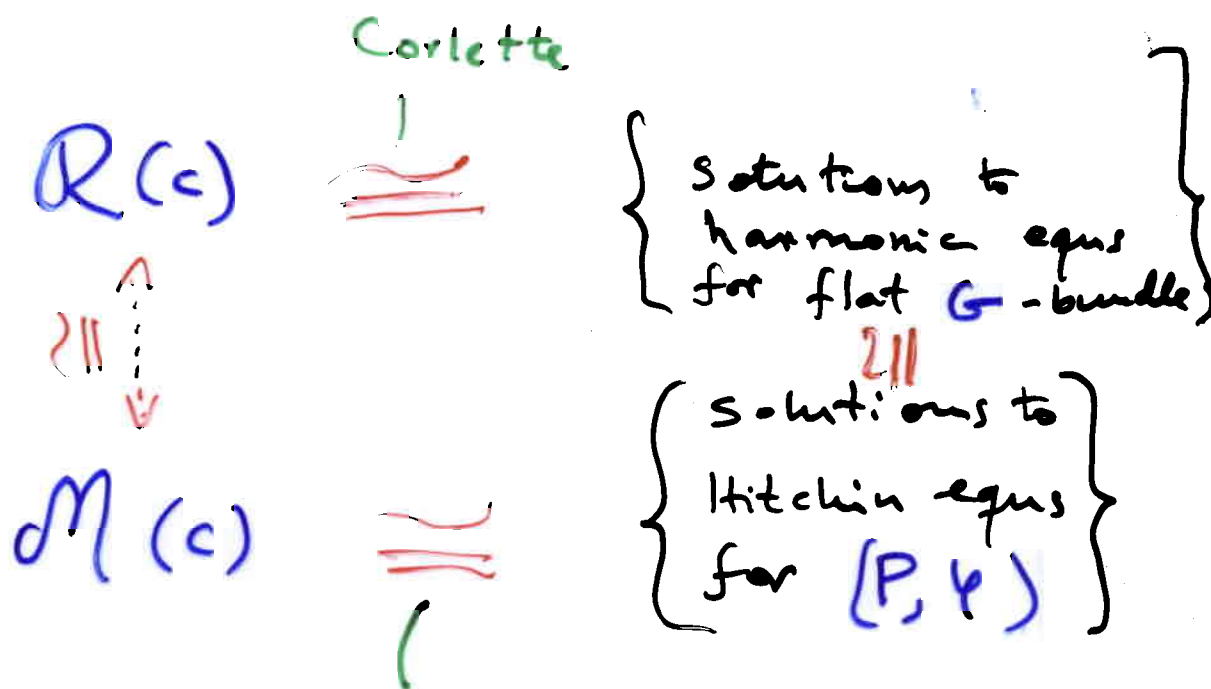 Corlette
R(c) ≅ { solutions to
harmonic equs
for flat G-bundle }
≀|| ≀||
M(c) ≅ { solutions to
Hitchin equs
for (P, φ) }